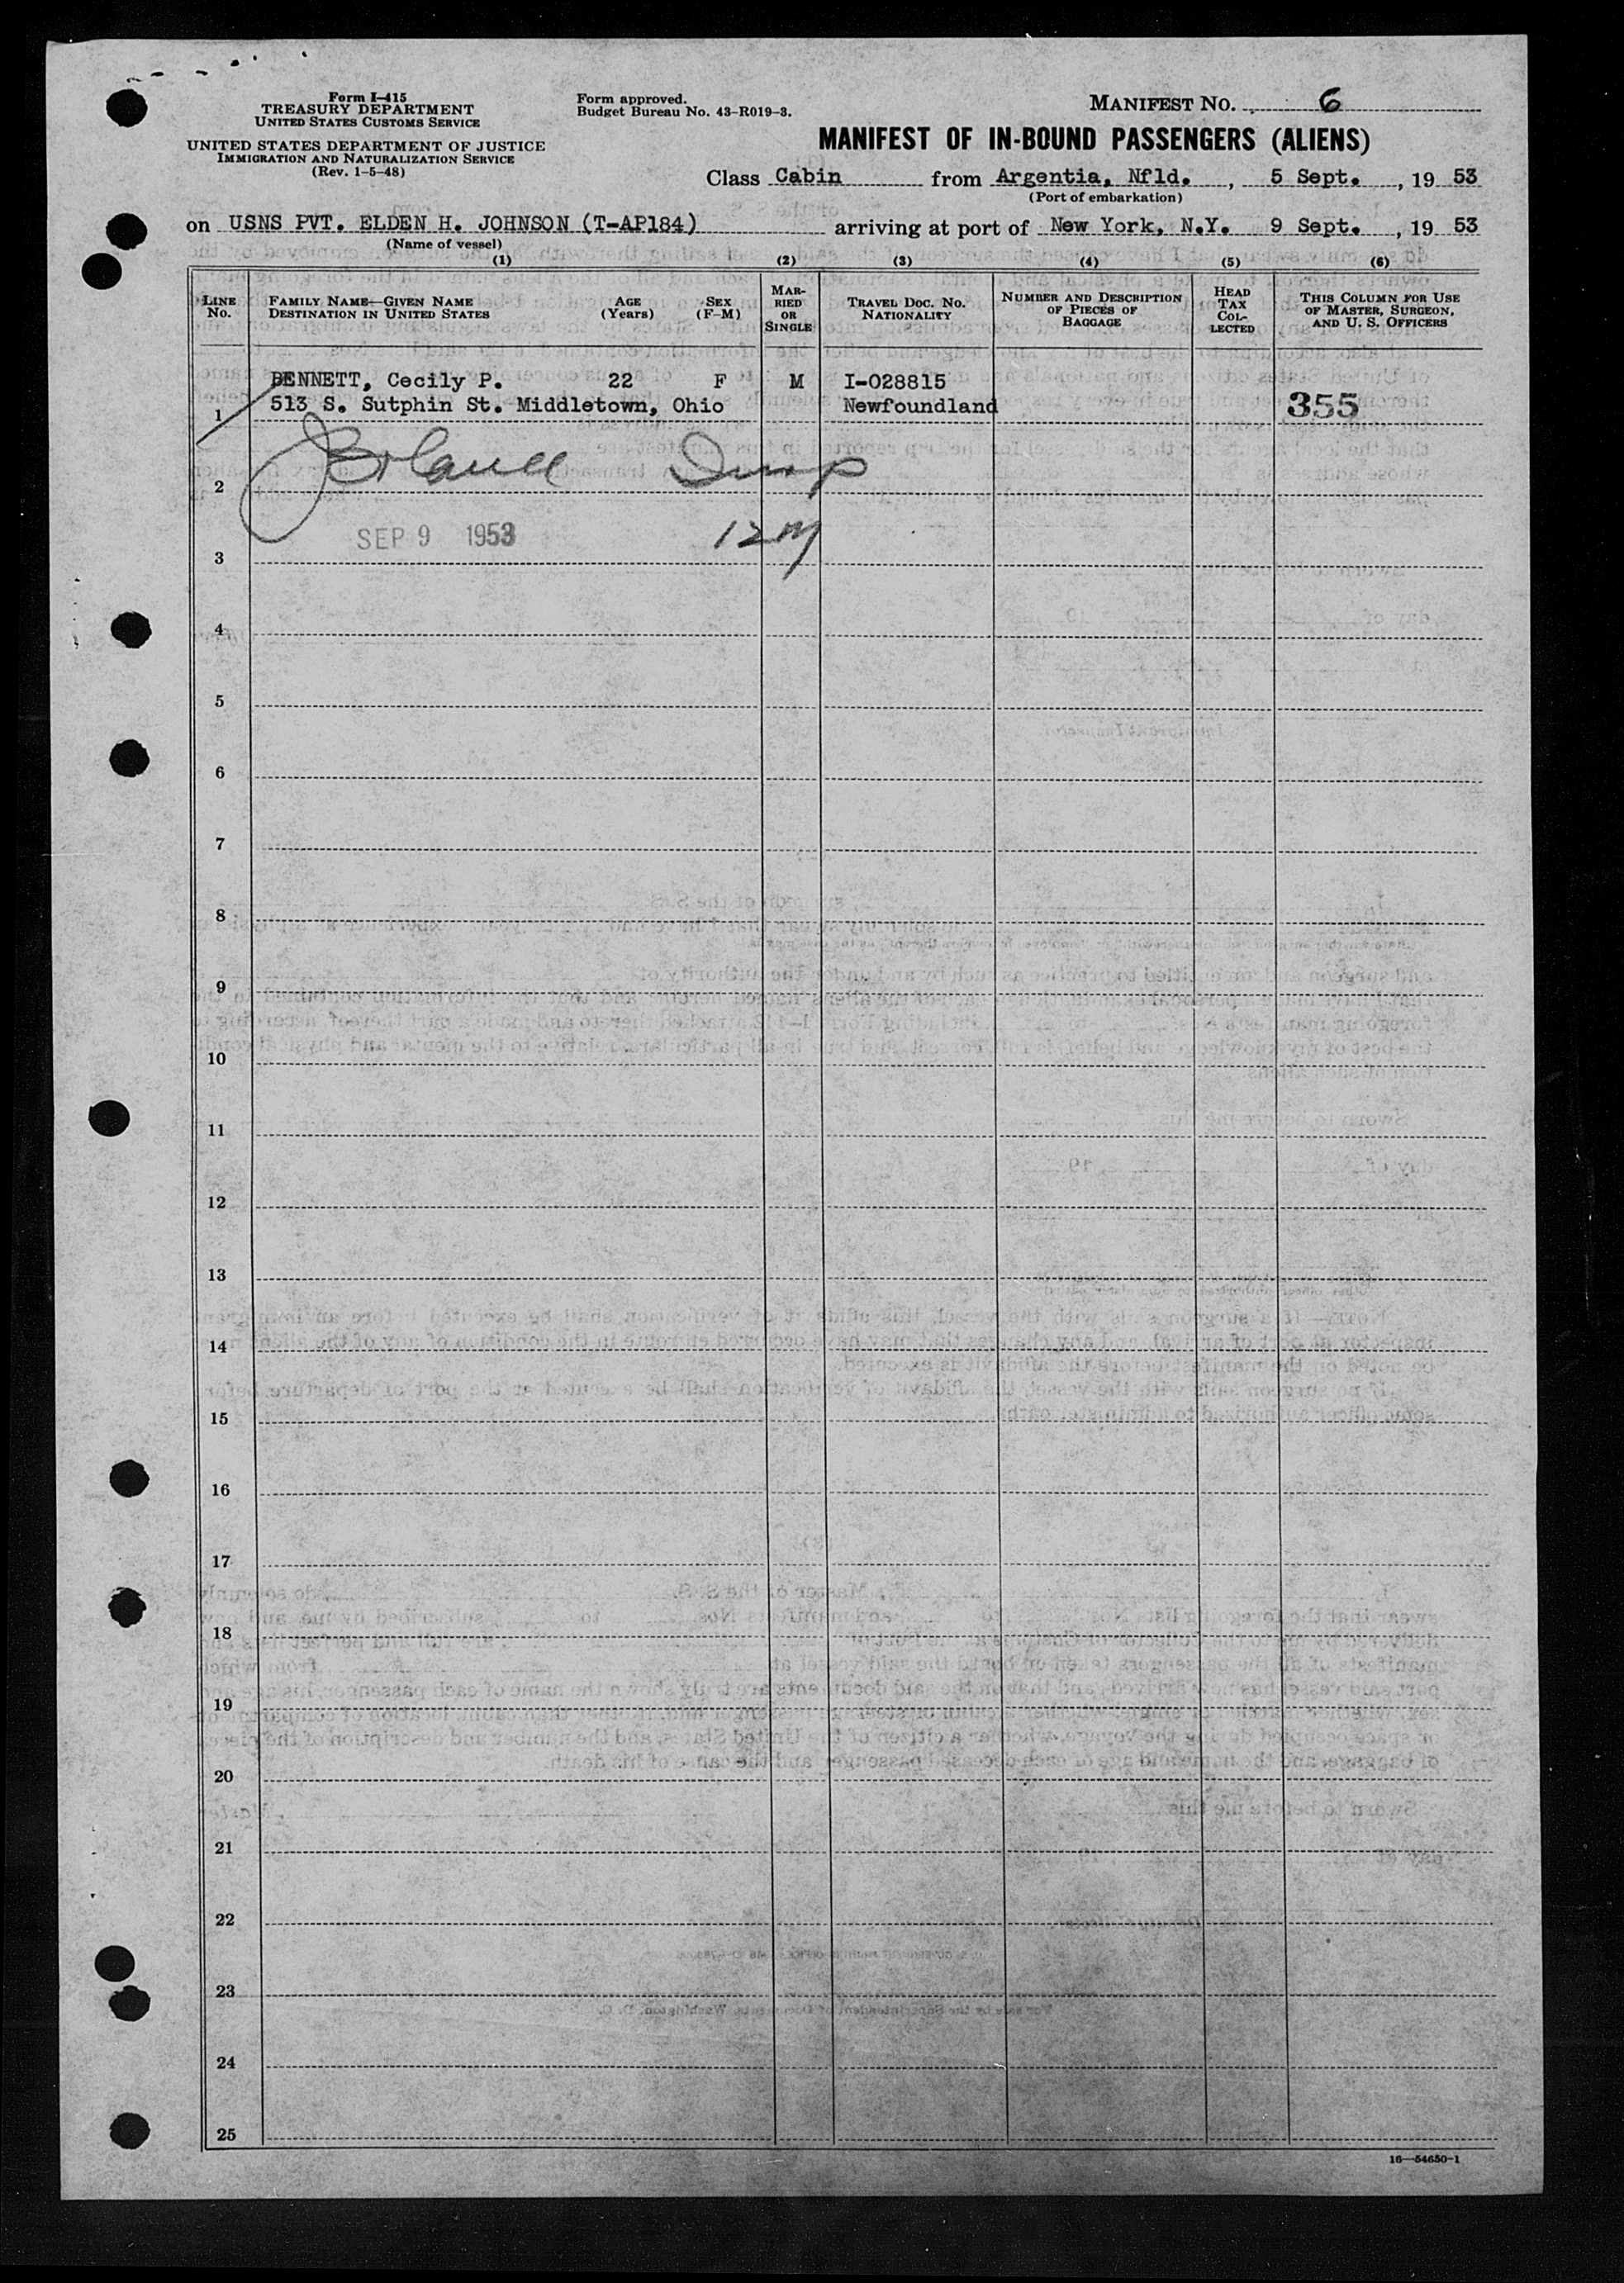 Form I-415
TREASURY DEPARTMENT
UNITED STATES CUSTOMS SERVICE
UNITED STATES DEPARTMENT OF JUSTICE
IMMIGRATION AND NATURALIZATION SERVICE
(Rev. 1-5-48)
Form approved.
Budget Bureau No. 43-R019-3.
MANIFEST NO. 6
MANIFEST OF IN-BOUND PASSENGERS (ALIENS)
Class Cabin from Argentia, Nfld. , 5 Sept. , 19 53
(Port of embarkation)
on USNS PVT. ELDEN H. JOHNSON (T-AP184) arriving at port of New York, N.Y. 9 Sept. , 19 53
(Name of vessel)
(1) (2) (3) (4) (5) (6)
LINE No.
FAMILY NAME—GIVEN NAME
DESTINATION IN UNITED STATES
AGE (Years)
SEX (F-M)
MARRIED OR SINGLE
TRAVEL DOC. NO.
NATIONALITY
NUMBER AND DESCRIPTION OF PIECES OF BAGGAGE
HEAD TAX COLLECTED
THIS COLUMN FOR USE OF MASTER, SURGEON, AND U. S. OFFICERS
BENNETT, Cecily P. 22 F M I-028815
1 513 S. Sutphin St. Middletown, Ohio Newfoundland 355
2
SEP 9 1953 12 M
3
4
5
6
7
8
9
10
11
12
13
14
15
16
17
18
19
20
21
22
23
24
25
16—54650-1